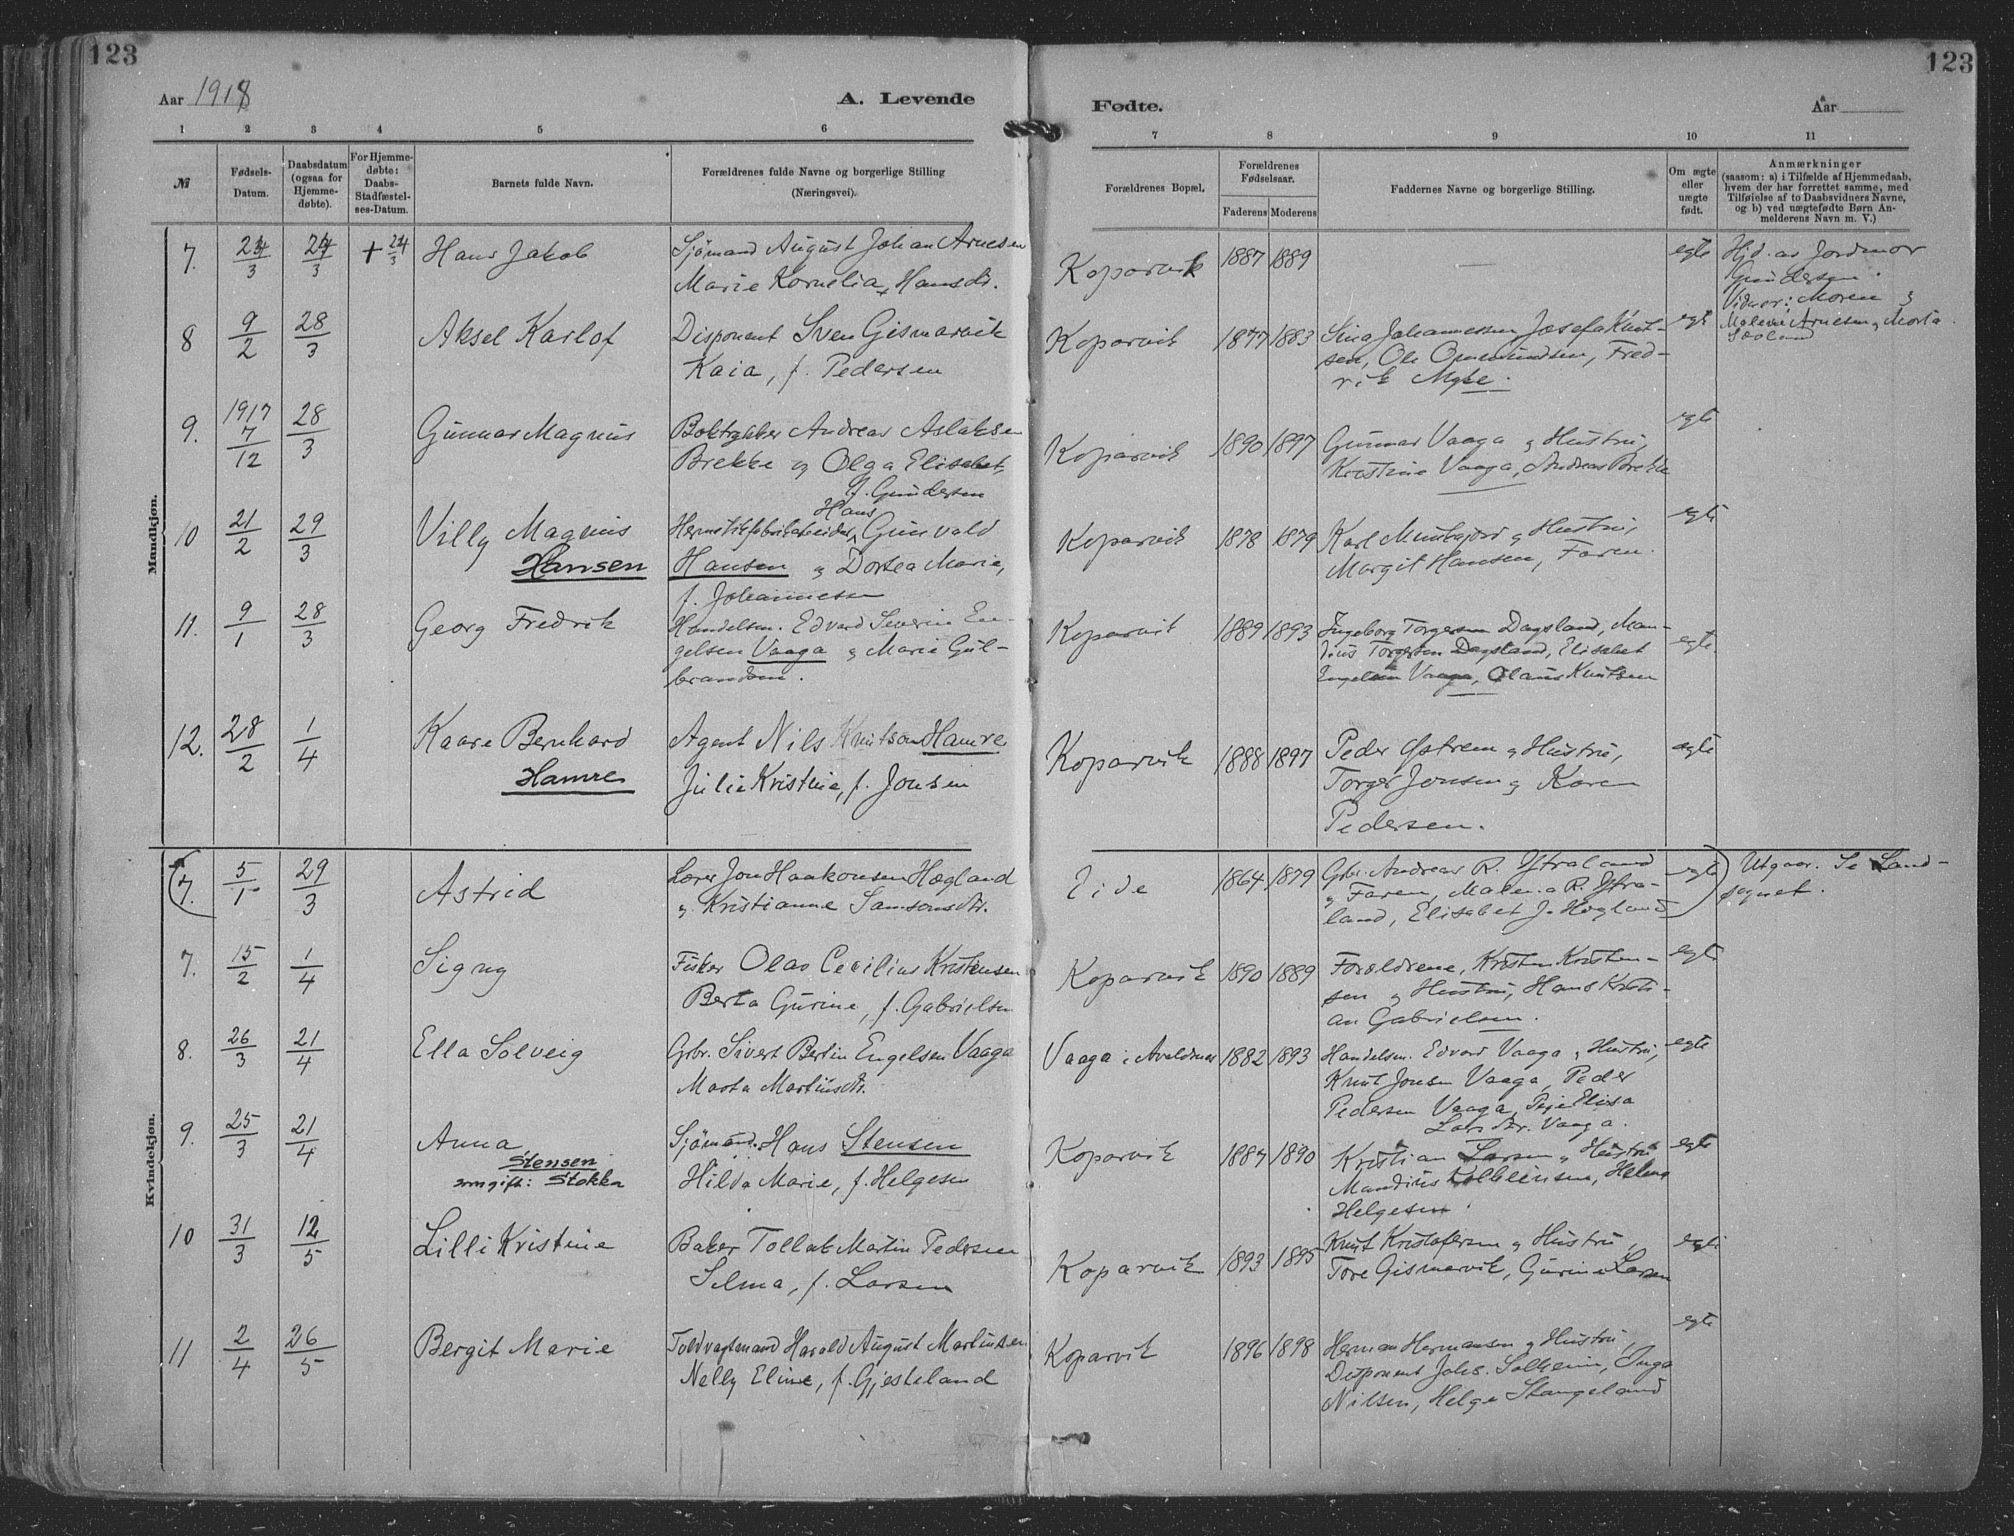 123
123
Aar 1918
A. Levende
Fødte.
Aar
1 2 3 4 5 6 7 8 9 10 11
№
Fødsels-Datum.
Daabsdatum (ogsaa for Hjemme-døbte).
For Hjemme-døbte: Daabs-Stadfæstel-ses-Datum.
Barnets fulde Navn.
Forældrenes fulde Navne og borgerlige Stilling (Næringsvei).
Forældrenes Bopæl.
Forældrenes Fødselsaar.
Faderens Moderens
Faddernes Navne og borgerlige Stilling.
Om ægte eller uægte født.
Anmærkninger
(saasom: a) i Tilfælde af Hjemmedaab,
hvem der har forrettet samme, med
Tilføielse af to Daabsvidners Navne,
og b) ved uægtefødte Børn An-
melderens Navn m. V.)
Mandkjøn.
7. 24/3 24/3 + 24/3 Hans Jakob
Sjømand August Johan Arnesen
Marie Kornelia Hansdtr.
Koparvik 1887 1889 — egte
Hjd. av Jordmor
Gundersen.
Vidner: Moren &
Malene Arnesen, Marta
8 9/2 28/3 Aksel Karlof
Disponent Sven Gismarvik
Kaia, f. Pedersen
Koparvik 1877 1883
Sina Johannessen, Josefa Knut-
sen, Ole Ommundsen, Fred-
rik Myhe.
egte
9. 1917 7/12 28/3 Gunnar Magnus
Boktrykker Andreas Aslaksen
Brekke og Olga Elisabet,
f. Gundersen
Koparvik 1890 1897
Gunnar Vaaga og Hustru,
Kristine Vaaga, Andreas Brekke
egte
10 21/2 29/3 Villy Magnus
Hansen
Hans
Hermetikfabrikarbeider Gunvald
Hansen og Dortea Marie,
f. Johannessen
Koparvik 1878 1879
Karl Munkejord og Hustru,
Margit Hansen, Faren.
egte
11. 9/1 28/3 Georg Fredrik
Handelsm. Edvard Severin En-
gelsen Vaaga og Marie Gul-
brandsen.
Koparvik 1889 1893
Ingeborg Torgersen Dagsland, Man-
dius Torgersen Dagsland, Elisabet
Engelsen Vaaga, Olaus Knutsen
egte.
12. 28/2 1/4 Kaare Bernhard
Hamre
Agent Nils Knutson Hamre
Julie Kristine, f. Jonsen
Koparvik 1888 1897
Peder Østrem og Hustru,
Torger Jonsen og Karen
Pedersen.
egte
Kvindekjøn.
7. 5/1 29/3 Astrid
Lærer Jon Haakonsen Hægland
og Kristianne Samsonsdtr.
Eide 1864 1879
Gbr. Andreas R. Ystraland
og Faren, Malena R. Ystra-
land, Elisabet J. Høgland
egte
Utgaar. Se Land-
sognet.
7. 15/2 1/4 Signy
Fisker Olav Cecilius Kristensen
Berta Gurine, f. Gabrielsen
Koparvik 1890 1889
Forældrene, Kristen Kristen-
sen og Hustru, Hans Kristi-
an Gabrielsen.
egte
8. 26/3 21/4 Ella Solveig
Gbr. Sivert Bertin Engelsen Vaaga
Marta Martinsdtr.
Vaaga i Avaldnes 1882 1893
Handelsm. Edvard Vaaga og Hustru,
Knut Jonsen Vaaga, Peder
Pedersen Vaaga, Elisa
Larsdtr. Vaaga.
egte
9. 25/3 21/4 Anna
Stensen
som gift: Stokka
Sjømand Hans Stensen
Hilda Marie, f. Helgesen
Koparvik 1887 1890
Kristian Larsen og Hustru
Mandius Kolbeinsen, Helena
Helgesen.
egte
10 31/3 12/5 Lilli Kristine
Baker Tollak Martin Pedersen
Selma, f. Larsen
Koparvik 1893 1895
Knut Kristofersen og Hustru,
Tore Gismarvik, Gurine Larsen
egte
11 2/4 26/5 Bergit Marie
Toldvagtmand Harald August Martinsen
Nelly Eline, f. Gjesteland
Koparvik 1896 1898
Herman Hermansen og Hustru,
Disponent Johs. Solheim, Inga
Nilsen, Helge Stangeland
egte